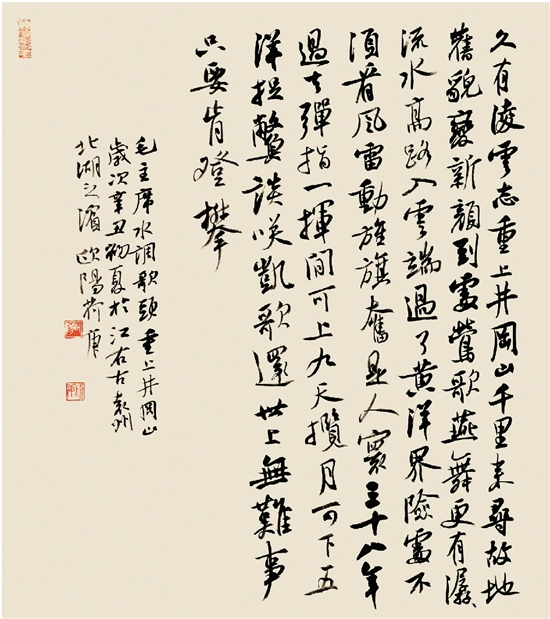 久有凌雲志重上井岡山千里来尋故地
舊貌變新顏到處鶯歌燕舞更有潺〻
流水高路入雲端過了黄洋界險處不
須看風雷動旌旗奮是人寰三十八年
過去彈指一揮間可上九天攬月可下五
洋捉鱉談咲凱歌還世上無難事
只要肯登攀
毛主席水調歌頭重上井岡山
歲次辛丑初夏於江右古袁州
北湖之濱歐陽荷庚